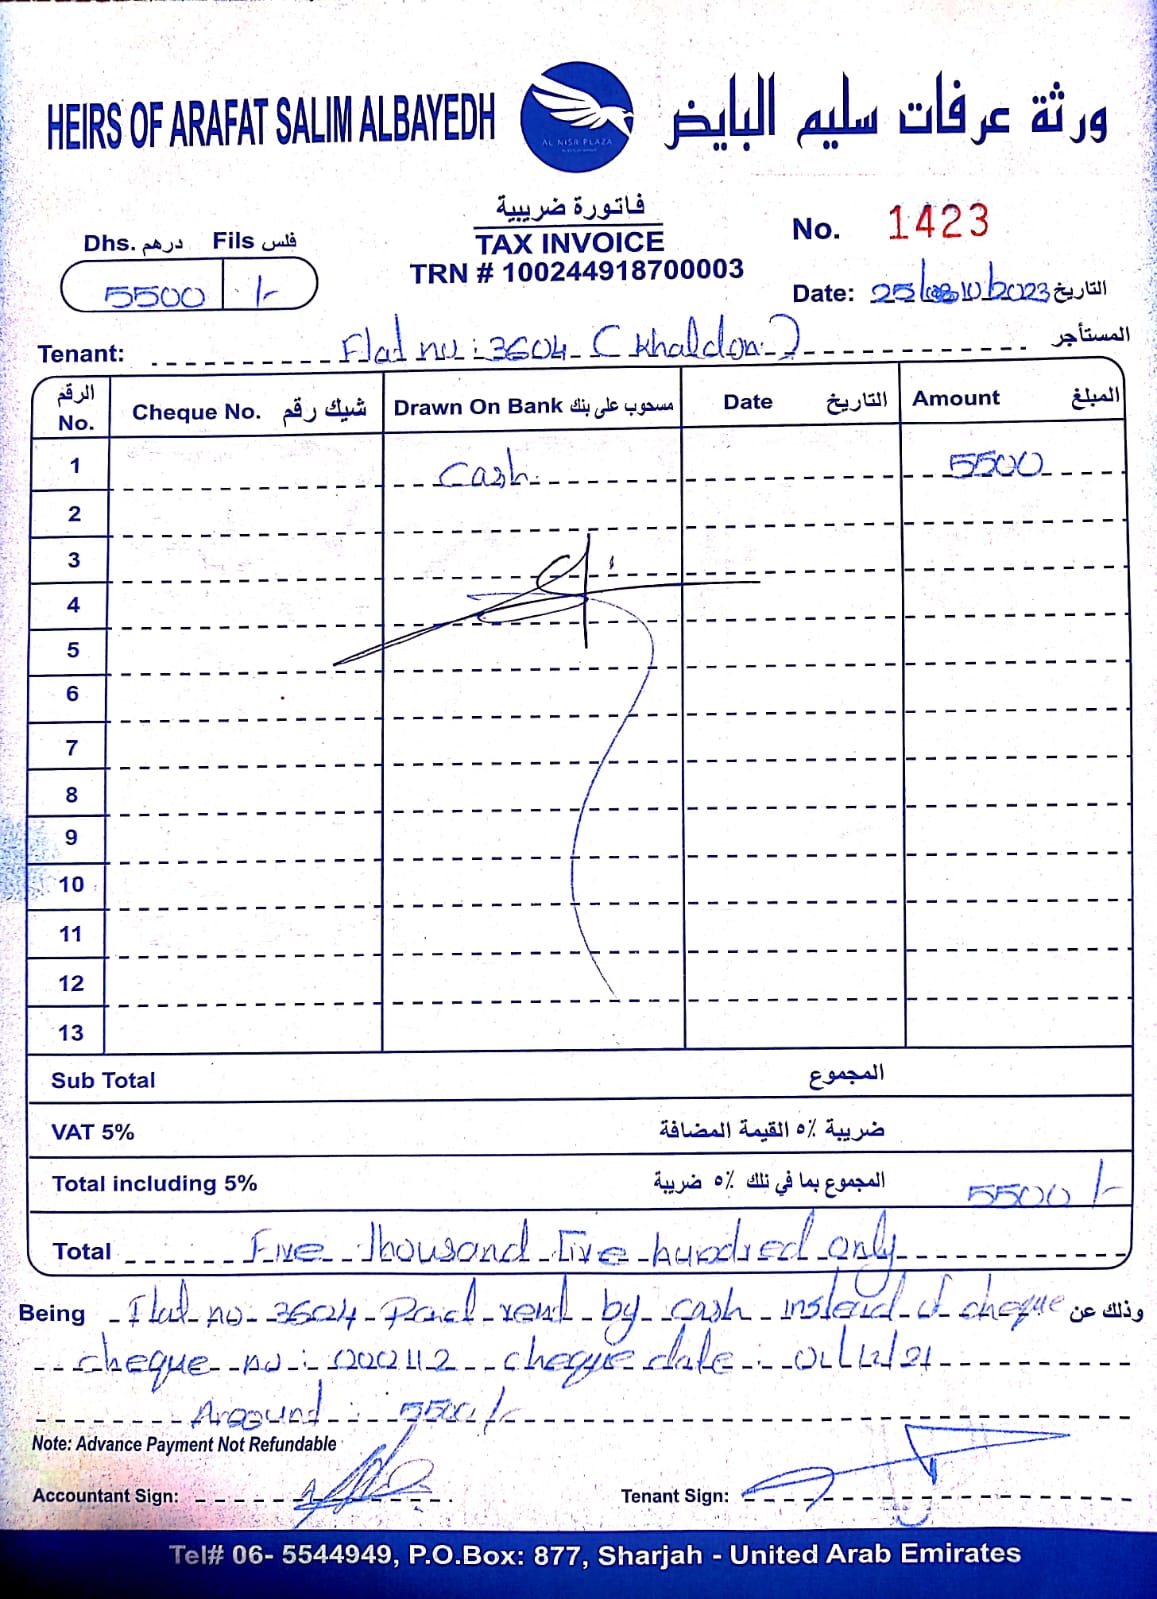 HEIRS OF ARAFAT SALIM ALBAYEDH
ورثة عرفات سليم البايض
AL NISR PLAZA
فاتورة ضريبية
TAX INVOICE
TRN # 100244918700003
No. 1423
Dhs. درهم Fils فلس
5500 /-
Date: 25/ 10/2023 التاريخ
Tenant: Flat no : 3604 (Khaldon) المستأجر
الرقم No. Cheque No. شيك رقم Drawn On Bank مسحوب على بنك Date التاريخ Amount المبلغ
1 Cash 5500
2
3
4
5
6
7
8
9
10
11
12
13
Sub Total المجموع
VAT 5% ضريبة ٪٥ القيمة المضافة
Total including 5% المجموع بما في ذلك ٪٥ ضريبة 5500 /-
Total Five Thousand Five hundred only
Being Flat no 3604 Paid rent by cash instead of cheque وذلك عن
cheque no : 000112 cheque date :
: 5500/-
Note: Advance Payment Not Refundable
Accountant Sign:
Tenant Sign:
Tel# 06- 5544949, P.O.Box: 877, Sharjah - United Arab Emirates